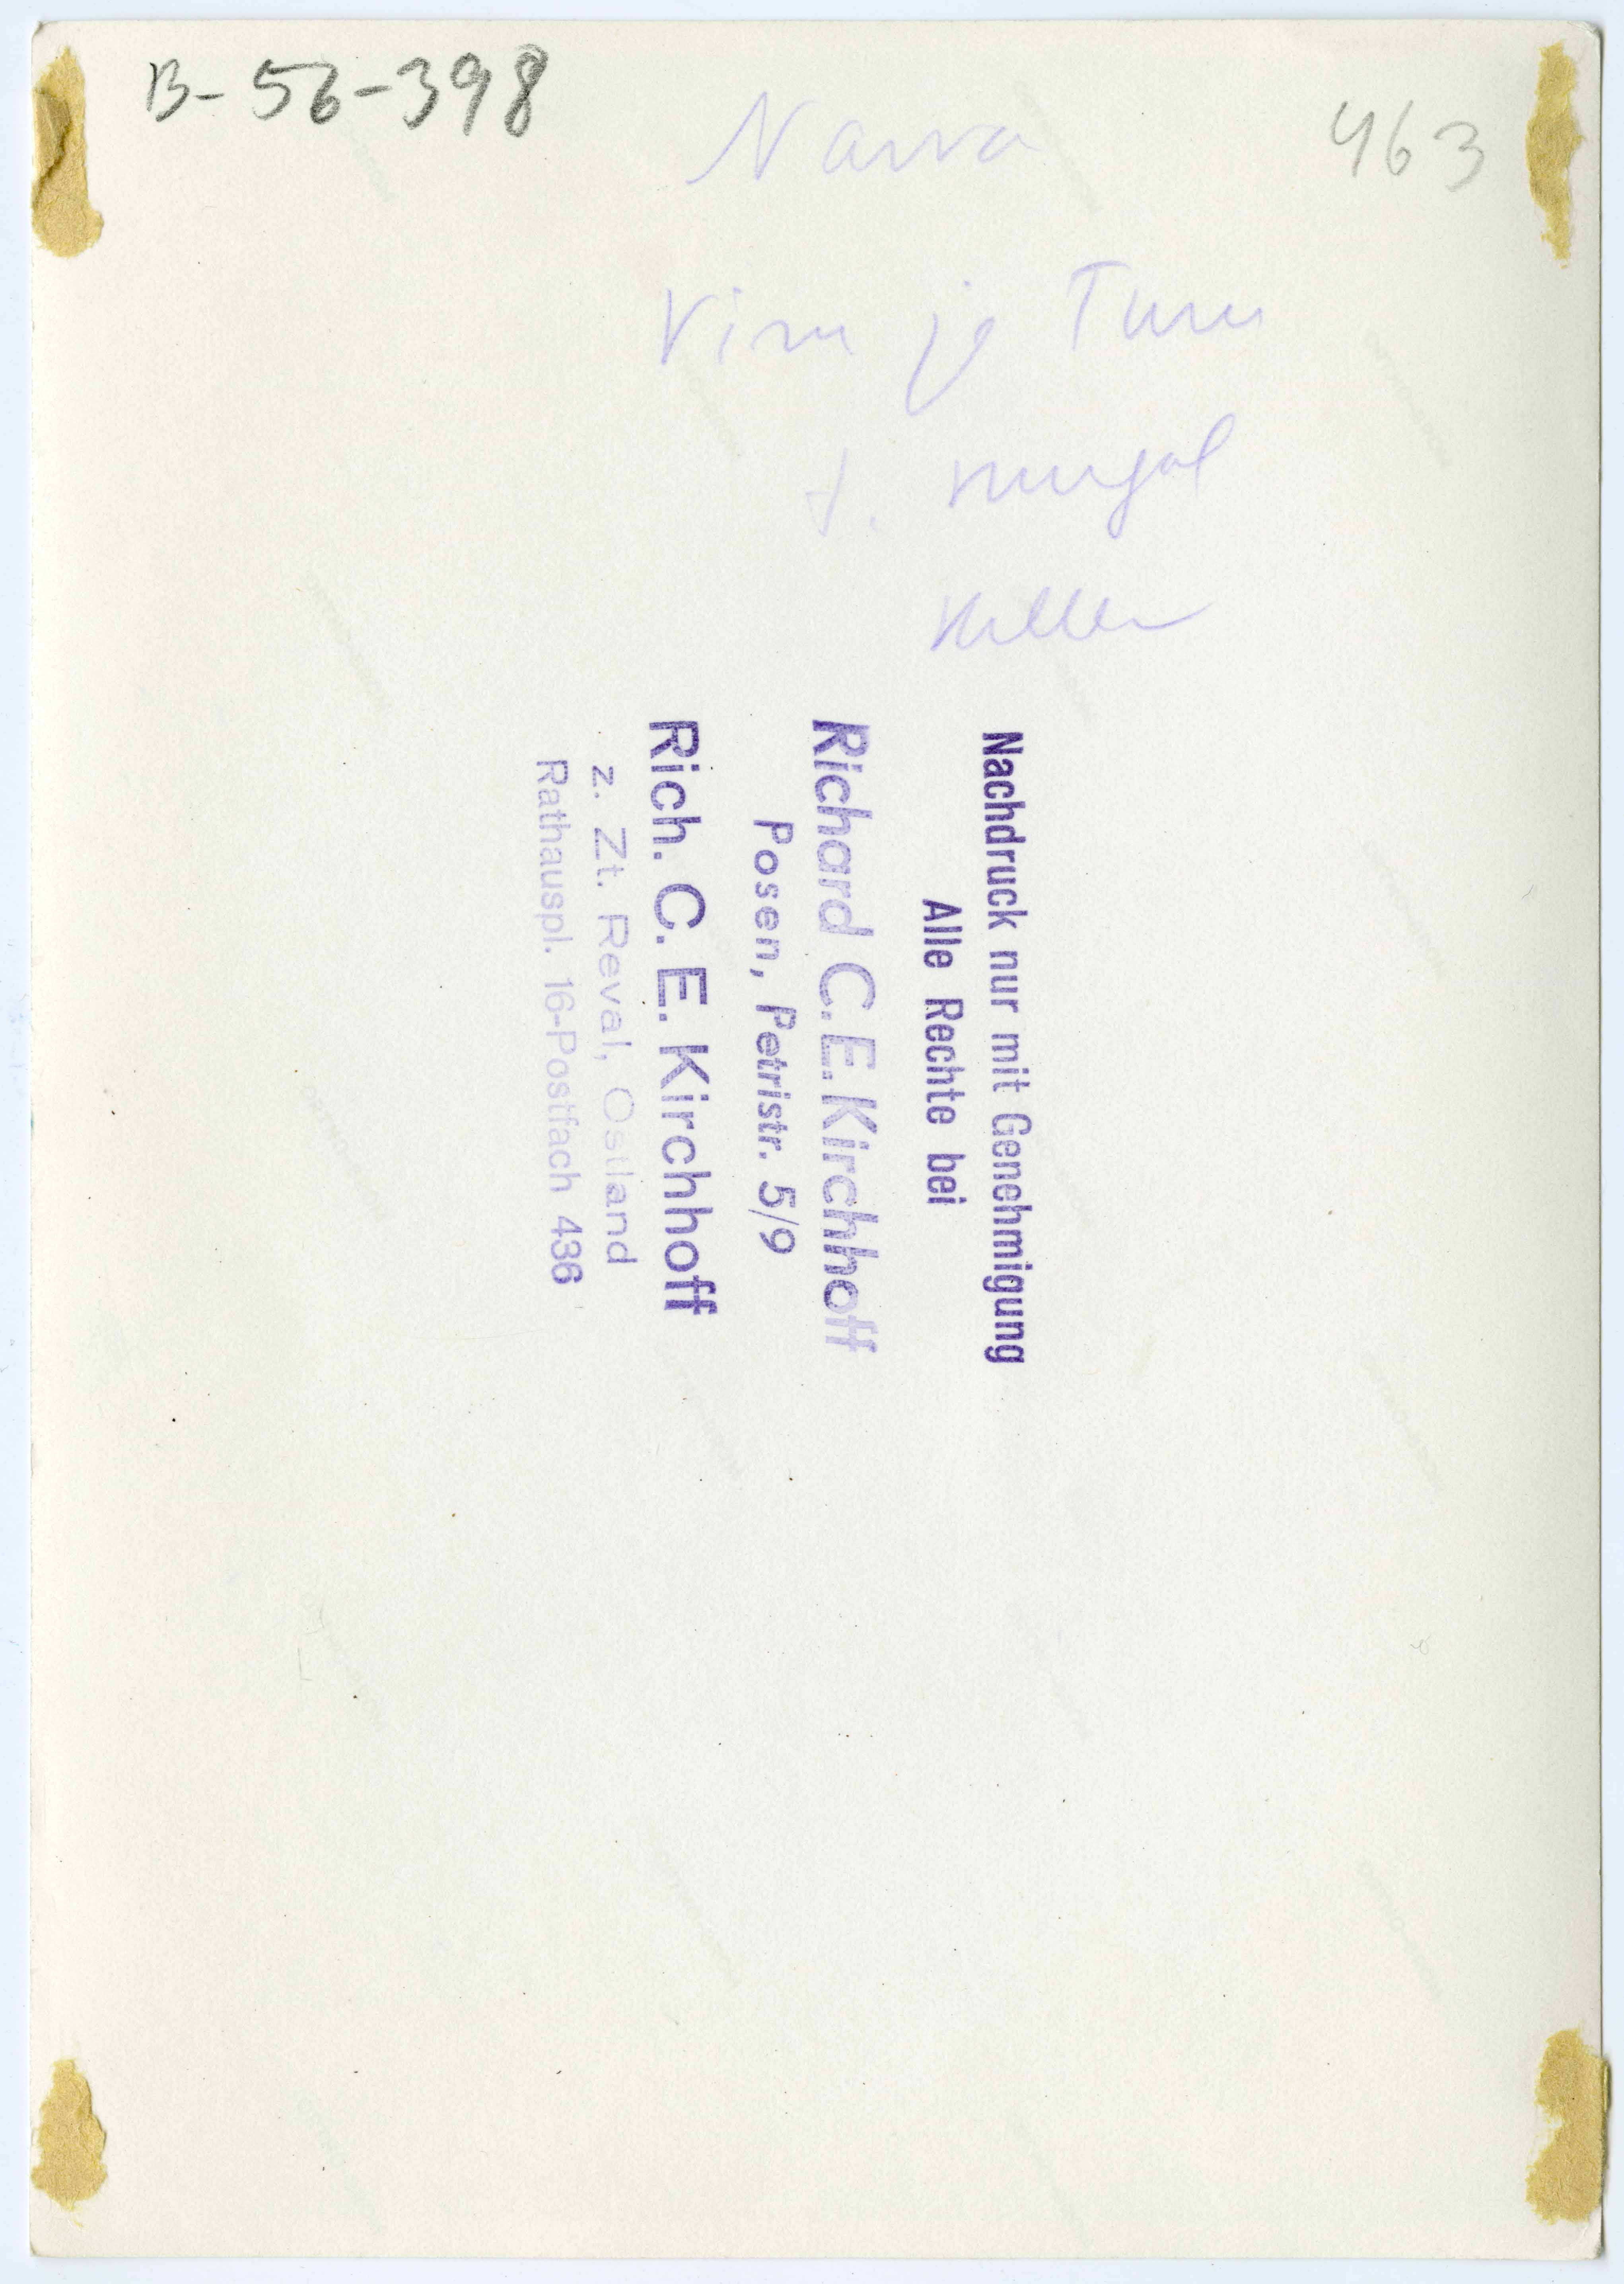 B-56-398
Narva
463
Viru ja Turu
t. nurgal
Nachdruck nur mit Genehmigung
Alle Rechte bei
Richard C. E. Kirchhoff
Posen, Petristr. 5/9
Rich. C. E. Kirchhoff
z. Zt. Reval, Ostland
Rathauspl. 16-Postfach 436